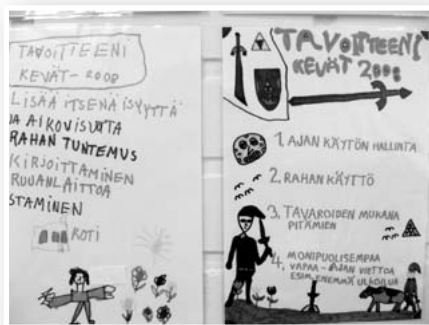 TAVOITTEENI
KEVÄT-2008
LISÄÄ ITSENÄISYYTTÄ
JA AIKOVISUUTTA
RAHAN TUNTEMUS
KIRJOITTAMINEN
RUUANLAITTOA
STAMINEN
KOTI
TAVOITTEENI
KEVÄT 2008
1. AJAN KÄYTÖN HALLINTA
2. RAHAN KÄYTTÖ
3. TAVAROIDEN MUKANA
PITÄMIEN
4. MONIPUOLISEMPAA
VAPAA-AJAN VIETTOA
ESIM. ENEMMÄ ULKOILUA